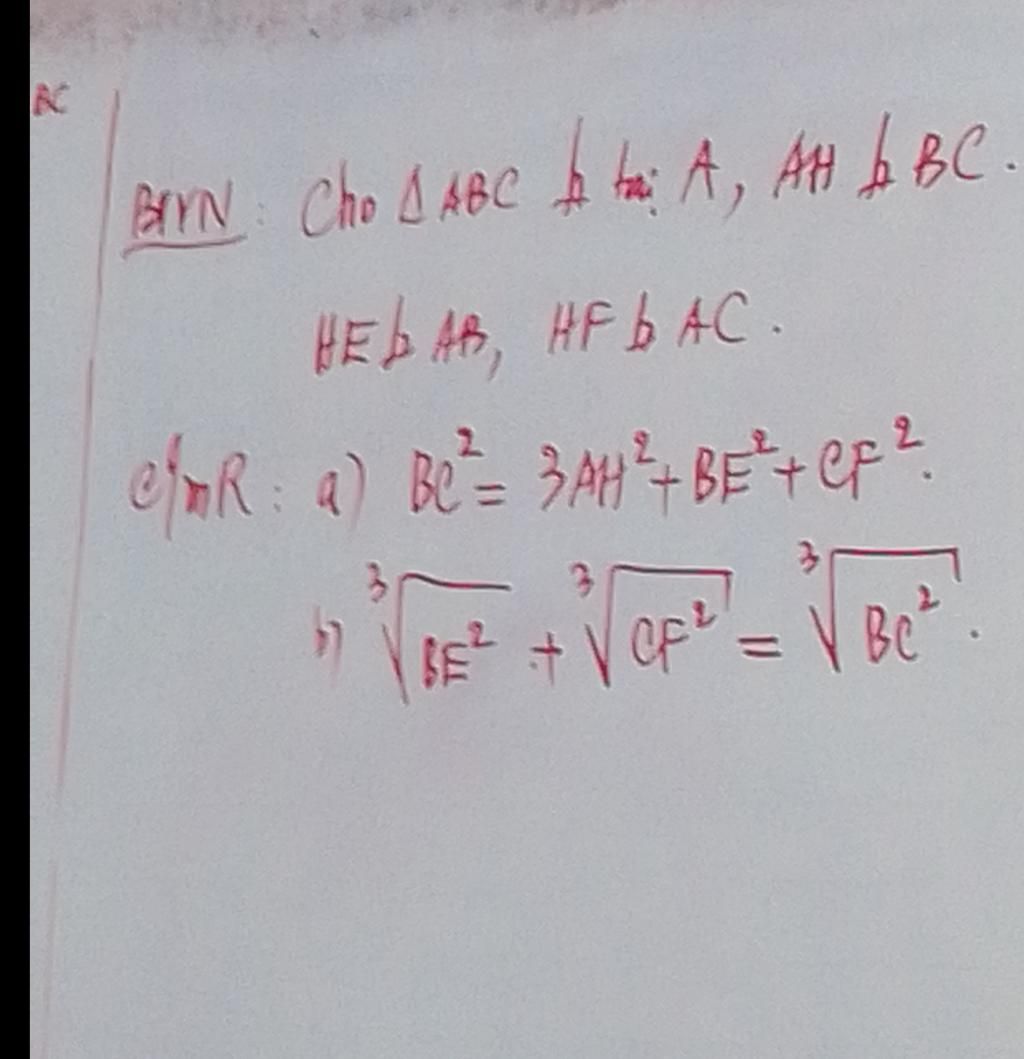 BC
BTVN: Cho Δ ABC ⊥ tại A, AH ⊥ BC.
HE ⊥ AB, HF ⊥ AC.
C/mR: a) BC² = 3AH² + BE² + CF².
b) ∛BE² + ∛CF² = ∛BC².